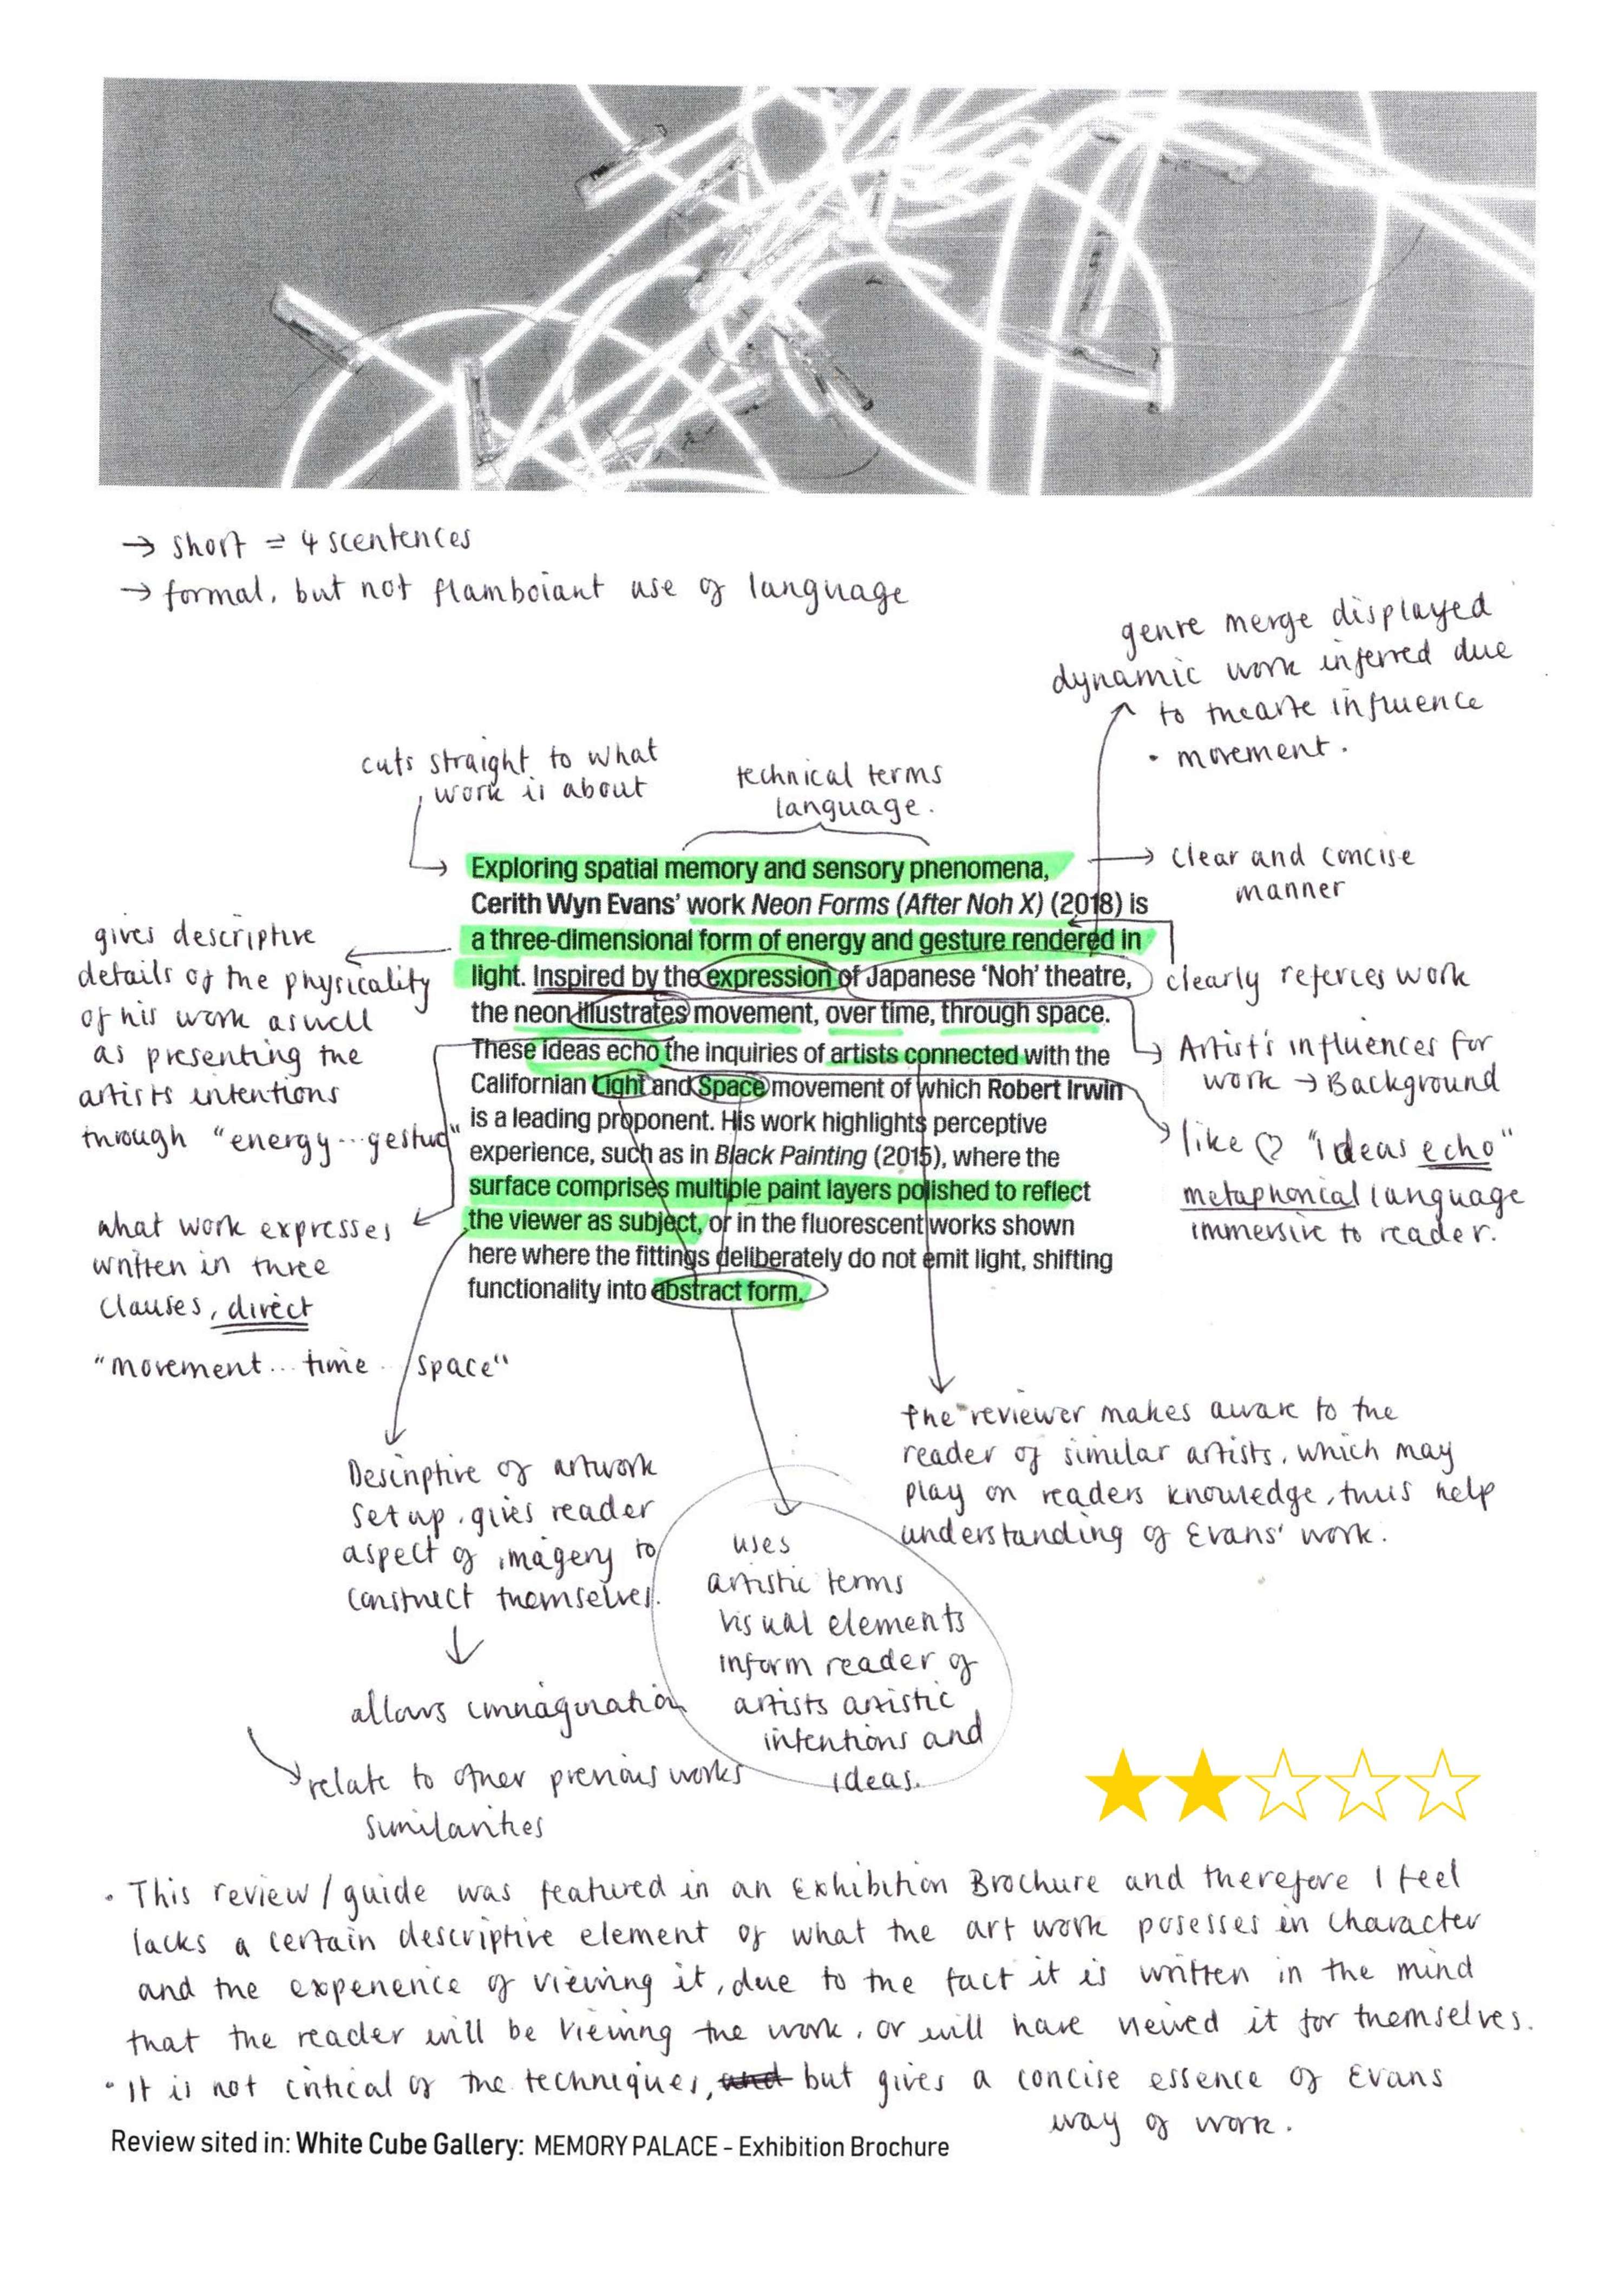 → short = 4 scentences
→ formal, but not flamboiant use of language
genre merge displayed
dynamic work inferred due
to thearte influence
• movement.
cuts straight to what
work is about
technical terms
language.
Exploring spatial memory and sensory phenomena,
Cerith Wyn Evans' work Neon Forms (After Noh X) (2018) is
a three-dimensional form of energy and gesture rendered in
light. Inspired by the expression of Japanese 'Noh' theatre,
the neon illustrates movement, over time, through space.
These ideas echo the inquiries of artists connected with the
Californian Light and Space movement of which Robert Irwin
is a leading proponent. His work highlights perceptive
experience, such as in Black Painting (2015), where the
surface comprises multiple paint layers polished to reflect
the viewer as subject, or in the fluorescent works shown
here where the fittings deliberately do not emit light, shifting
functionality into abstract form.
clear and concise
manner
clearly refereces work
Artist's influences for
work → Background
like ♡ "ideas echo"
metaphorical language
immersive to reader.
gives descriptive
details of the physicality
of his work aswell
as presenting the
artists intentions
through "energy...gesture"
what work expresses
written in three
clauses, direct
"movement... time.../space"
Descriptive of artwork
set up, gives reader
aspect of imagery to
construct themselves.
↓
allows immagination
relate to other previous works
similarities
uses
artistic terms
visual elements
inform reader of
artists artistic
intentions and
ideas.
the reviewer makes aware to the
reader of similar artists, which may
play on readers knowledge, thus help
understanding of Evans' work.
• This review/guide was featured in an Exhibition Brochure and therefore I feel
lacks a certain descriptive element of what the art work posesses in character
and the experience of viewing it, due to the fact it is written in the mind
that the reader will be viewing the work, or will have viewed it for themselves.
• It is not critical of the techniques, and but gives a concise essence of Evans
way of work.
Review sited in: White Cube Gallery: MEMORY PALACE - Exhibition Brochure